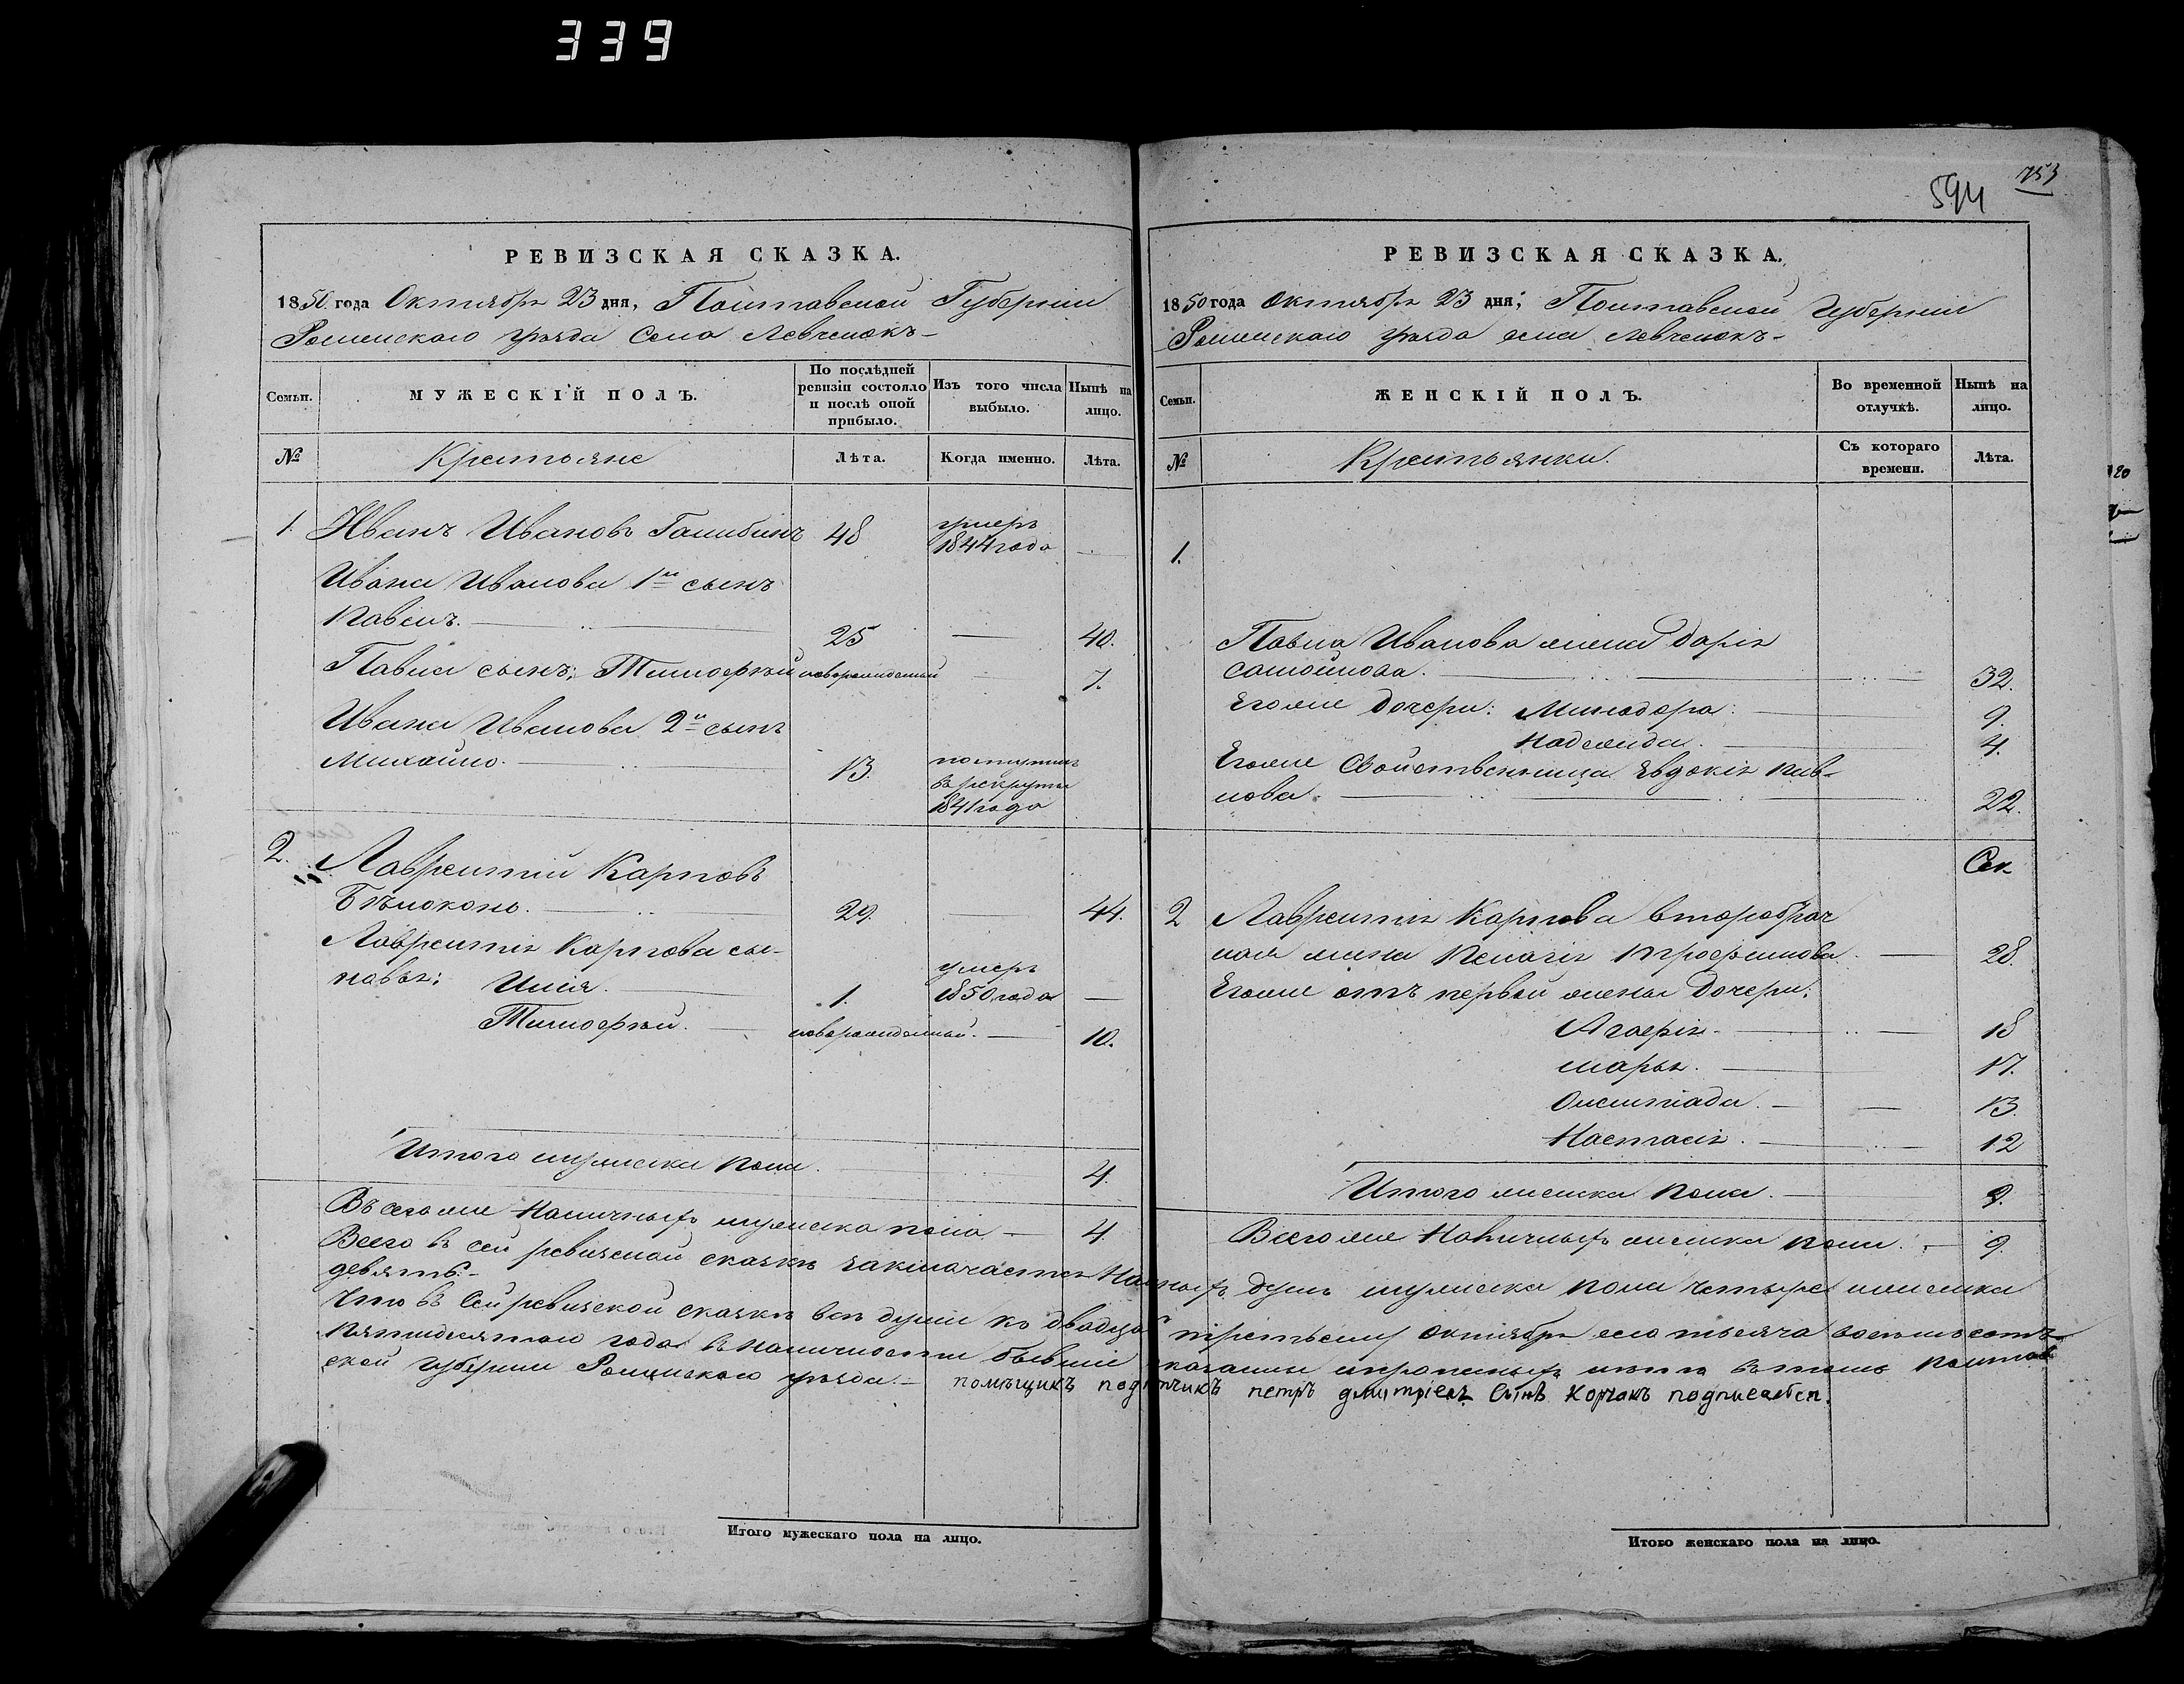 339
753
594
РЕВИЗСКАЯ СКАЗКА.
1850 года Октября 23 дня, Полтавской Губерніи
Роменскаго уѣзда Села Левченокъ
Семьи.
МУЖЕСКІЙ ПОЛЪ.
По послѣдней ревизіи состояло и послѣ оной прибыло.
Изъ того числа выбыло.
Нынѣ на лицо.
№
Крестьяне
Лѣта.
Когда именно.
Лѣта.
1. Иванъ Ивановъ 48 умеръ 1844 года
Ивана Иванова 1й сынъ
Павелъ. 25 40.
Павла сынъ: Тимофѣй новорожденный 7.
Ивана Иванова 2й сынъ
Михайло. 13. поступилъ в рекруты 1841 года
2. Лаврентій Карповъ
Бѣлоконь. 29. 44.
Лаврентія Карпова сы-
новья: Илія. 1. умеръ 1850 года
Тимофѣй. новорожденный. 10.
Итого мужеска пола. 4.
Всего же Наличныхъ мужеска пола 4.
РЕВИЗСКАЯ СКАЗКА.
1850 года Октября 23 дня; Полтавской Губерніи
Роменскаго уѣзда села Левченокъ
Семьи.
ЖЕНСКІЙ ПОЛЪ.
Во временной отлучкѣ.
Нынѣ на лицо.
№
Крестьянки.
Съ котораго времени.
Лѣта.
1.
Павла Иванова жена Дарія
Самойлова. 32.
Его же Дочери: Минодора: 9.
Надежда. 4.
Его же Свойственница Евдокія Пав-
лова. 22.
2 Лаврентія Карпова второбрач
ная жена Пелагія Трофимова. 28.
Его же отъ первой жены Дочери:
Агафія. 18
Марья. 17.
Олимпіада. 13.
Настасія. 12
Итого женска пола. 9.
Всего же Наличныхъ женска пола. 9.
Всего въ сей ревизской сказкѣ заключается Наличныхъ душъ мужеска пола четыре и женска
девять.
Что въ сей ревизской сказкѣ всѣ души къ двадцать третьему Октября сего тысяча восемьсотъ
пятидесятаго года въ наличности бывшіе показаны и прописныхъ нѣтъ въ томъ Полтав
ской Губерніи Роменскаго уѣзда. помѣщикъ петръ дмитріевъ Сынъ Корчакъ подписался.
Итого мужескаго пола на лицо.
Итого женскаго пола на лицо.